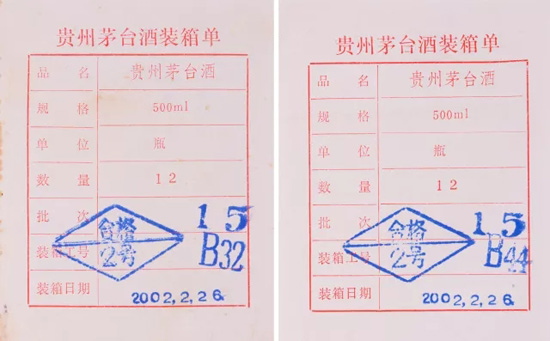 贵州茅台酒装箱单
品 名 贵州茅台酒
规 格 500ml
单 位 瓶
数 量 12
批 次 15
合格
2号
装箱工号 B32
装箱日期 2002,2,26.
贵州茅台酒装箱单
品 名 贵州茅台酒
规 格 500ml
单 位 瓶
数 量 12
批 次 15
合格
2号
装箱工号 B44
装箱日期 2002,2,26.